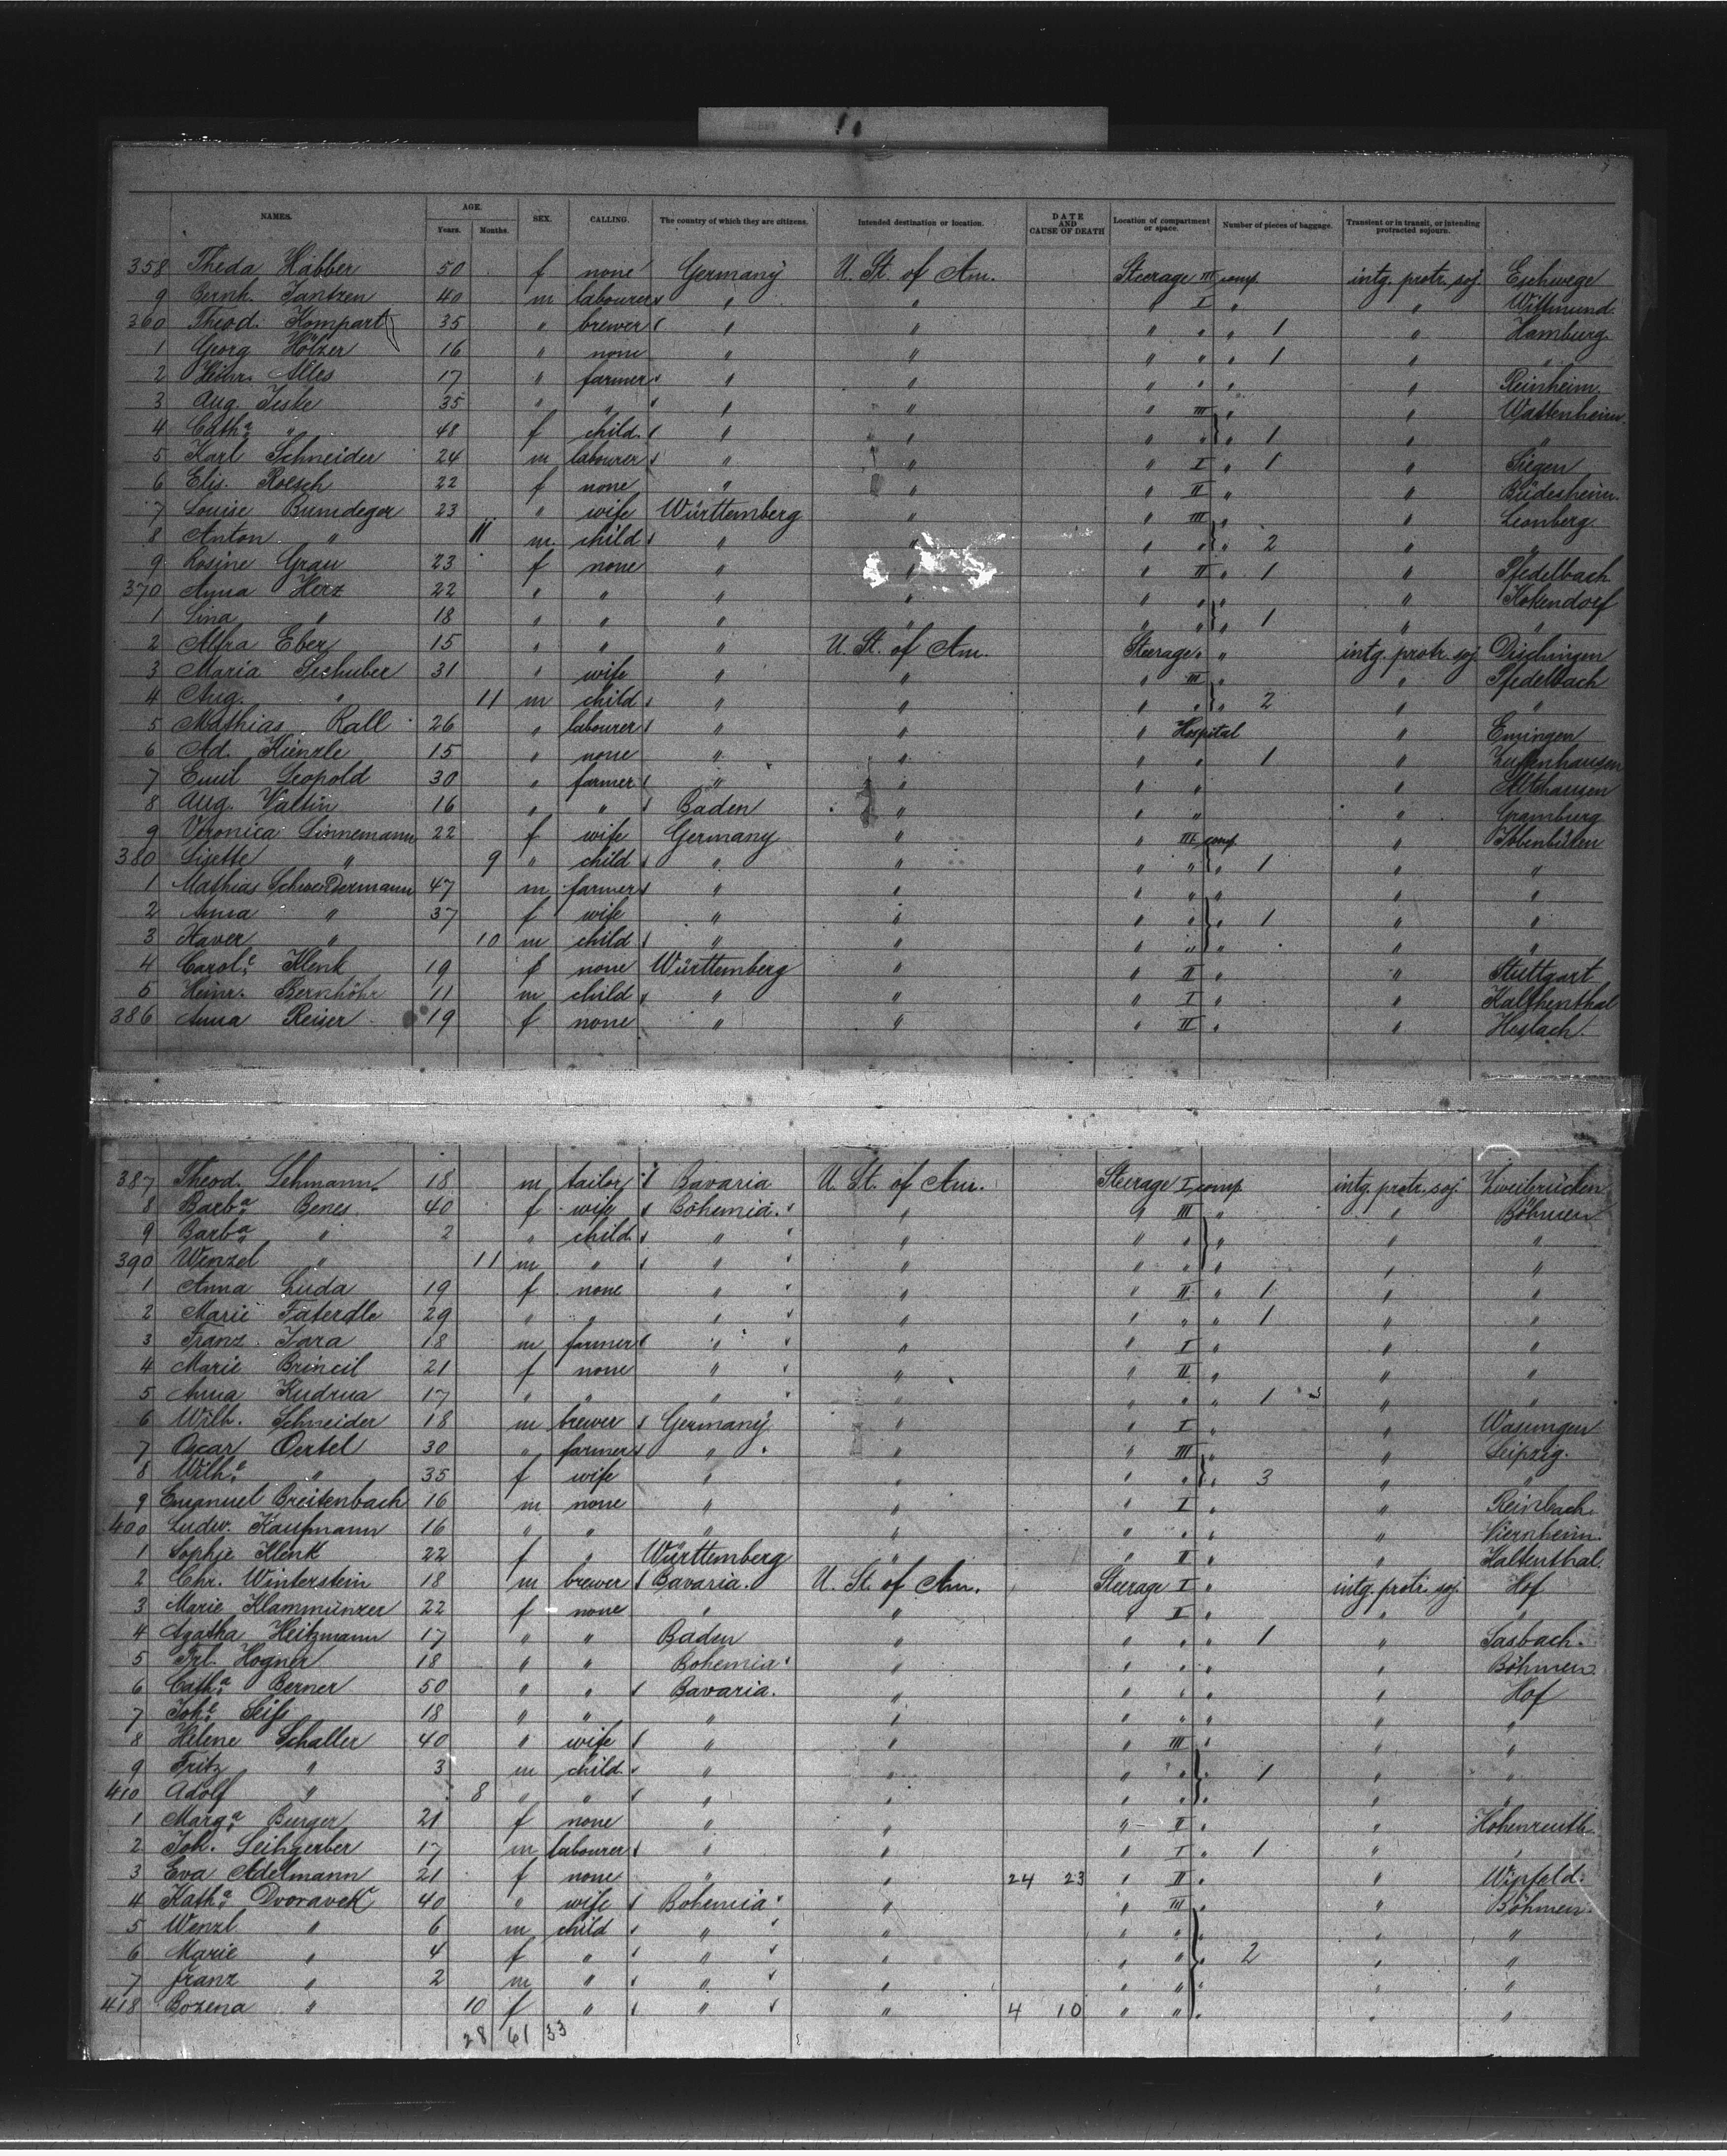 NAMES. AGE. Years. Months. SEX. CALLING. The country of which they are citizens. Intended destination or location. DATE AND CAUSE OF DEATH Location of compartment or space. Number of pieces of baggage. Transient or in transit, or intending protracted sojourn.
358 Theda Habber 50 f none Germany U. St. of Am. Steerage III comp. intg. protr. soj. Eschwege
9 Bernh. Jantzen 40 m labourer " " " I " " Wittmund
360 Theod. Kompart 35 " brewer " " " " " 1 " Hamburg
1 Georg Hölzer 16 " none " " " " " 1 " "
2 Alles 17 " farmer " " " " " " Reinheim
3 Aug. Jeske 35 " " " " " III " " Wattenheim
4 Cath.a " 48 f child " " " " " 1 " "
5 Karl Schneider 24 m labourer " " " I " 1 " Siegen
6 Elis. Roesch 22 f none " " " II " " Büdesheim
7 Louise Bumdeger 23 " wife Württemberg " " III " " Leonberg
8 Anton " 11 m child " " " " " 2 " "
9 Rosine Grau 23 f none " " " II " 1 " Pfedelbach
370 Anna Herz 22 " " " " " " " " Kokendorf
1 Lina " 18 " " " " " " " 1 " "
2 Alfra Eber 15 " " " U. St. of Am. Steerage " " intg. protr. soj. Dischingen
3 Maria Tschuber 31 " wife " " " III " " Pfedelbach
4 Aug. " 11 m child " " " " " 2 " "
5 Mathias Rall 26 " labourer " " " Hospital " Emingen
6 Ad. Kienzle 15 " none " " " " 1 " Zuffenhausen
7 Emil Leopold 30 " farmer " " " " " Altshausen
8 Aug. Valtin 16 " " Baden " " " " Gramburg
9 Veronica Linnemann 22 f wife Germany " " III comp. " Ibbenbüren
380 Lisette " 9 " child " " " " " 1 " "
1 Mathias Schwedermann 47 m farmer " " " " " " "
2 Anna " 37 f wife " " " " " 1 " "
3 Xaver " 10 m child " " " " " " "
4 Carol.e Klenk 19 f none Württemberg " " II " " Stuttgart
5 Heinr. Bernhöhr 11 m child " " " I " " Kalthenthal
386 Anna Reiser 19 f none " " " II " " Heslach
387 Theod. Lehmann 18 m tailor Bavaria U. St. of Am. Steerage I comp. intg. protr. soj. Zweibrücken
8 Barb.a Benes 40 f wife Bohemia " " III " " Böhmen
9 Barb.a " 2 " child " " " " " " "
390 Wenzel " 11 m " " " " " " " "
1 Anna Luda 19 f none " " " II " 1 " "
2 Marie Faterdle 29 " " " " " " " 1 " "
3 Franz Jara 18 m farmer " " " I " " "
4 Marie Brincil 21 f none " " " II " " "
5 Anna Kudrna 17 " " " " " " " 1 " "
6 Wilh. Schneider 18 m brewer Germany " " I " " Wasungen
7 Oscar Oertel 30 " farmer " " " III " " Leipzig
8 Wilh.e " 35 f wife " " " " " 3 " "
9 Emanuel Breitenbach 16 m none " " " I " " Reinbach
400 Ludw. Kaufmann 16 " " " " " " " " Viernheim
1 Sophie Klenk 22 f " Württemberg " " II " " Kaltenthal
2 Chr. Winterstein 18 m brewer Bavaria. U. St. of Am. Steerage I " intg. protr. soj. Hof
3 Marie Klammünzer 22 f none " " " II " " "
4 Agatha Heitzmann 17 " " Baden " " " " 1 " Sasbach
5 Frl. Hogner 18 " " Bohemia " " " " " Böhmen
6 Cath.a Berner 50 " " Bavaria. " " " " " Hof
7 Joh.e Seiß 18 " " " " " " " " "
8 Helene Schaller 40 " wife " " " III " " "
9 Fritz " 3 m child " " " " " 1 " "
410 Adolf " 8 " " " " " " " " "
1 Marg.a Burger 21 f none " " " II " " Hohenreuth
2 Joh. Leihgerber 17 m labourer " " " I " 1 " "
3 Eva Adelmann 21 f none " " 24 23 " II " " Wipfeld
4 Kath.a Dvoravek 40 " wife Bohemia " " III " " Böhmen
5 Wenzl " 6 m child " " " " " " "
6 Marie " 4 f " " " " " " 2 " "
7 Franz " 2 m " " " " " " " "
418 Bozena " 10 f " " " 4 10 " " " " "
28 61 33